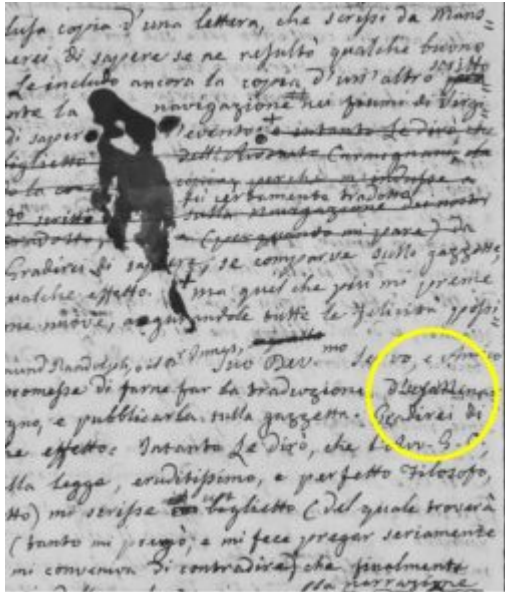 lusa copia d'una lettera, che scrissi da Mans=
erei di sapere se ne resultò qualche buono
Le includo ancora la copia d'un' altro scritto
nte la navigazione nei fiumi di Virgi=
di saper l'evento: e intanto Le dirò, che
biglietto dell'Avvocato
o la co copia, perchè m'indusse a
fei certamente tradotta
scritto sulla navigazione dei nostri
tradotto, e (per quando mi pare) da
Gradirei di sapere, se comparve sulle gazzette,
ualche effetto. ma quel che più mi preme
me nuove, augurandole tutte le felicità possi=
mund Randolph, Suo Dev.mo Servo, e Amico
promesse di farne far la traduzione,
gno, e pubblicarla sulla gazzetta. Gradirei di
he effetto: Intanto Le dirò, che
lla legge, eruditissimo, e perfetto Filosofo,
tto) mi scrisse un biglietto (del quale troverà
(tanto mi pregò, e mi fece pregar seriamente
mi conveniva di contradire) che finalmente
lla narrazione